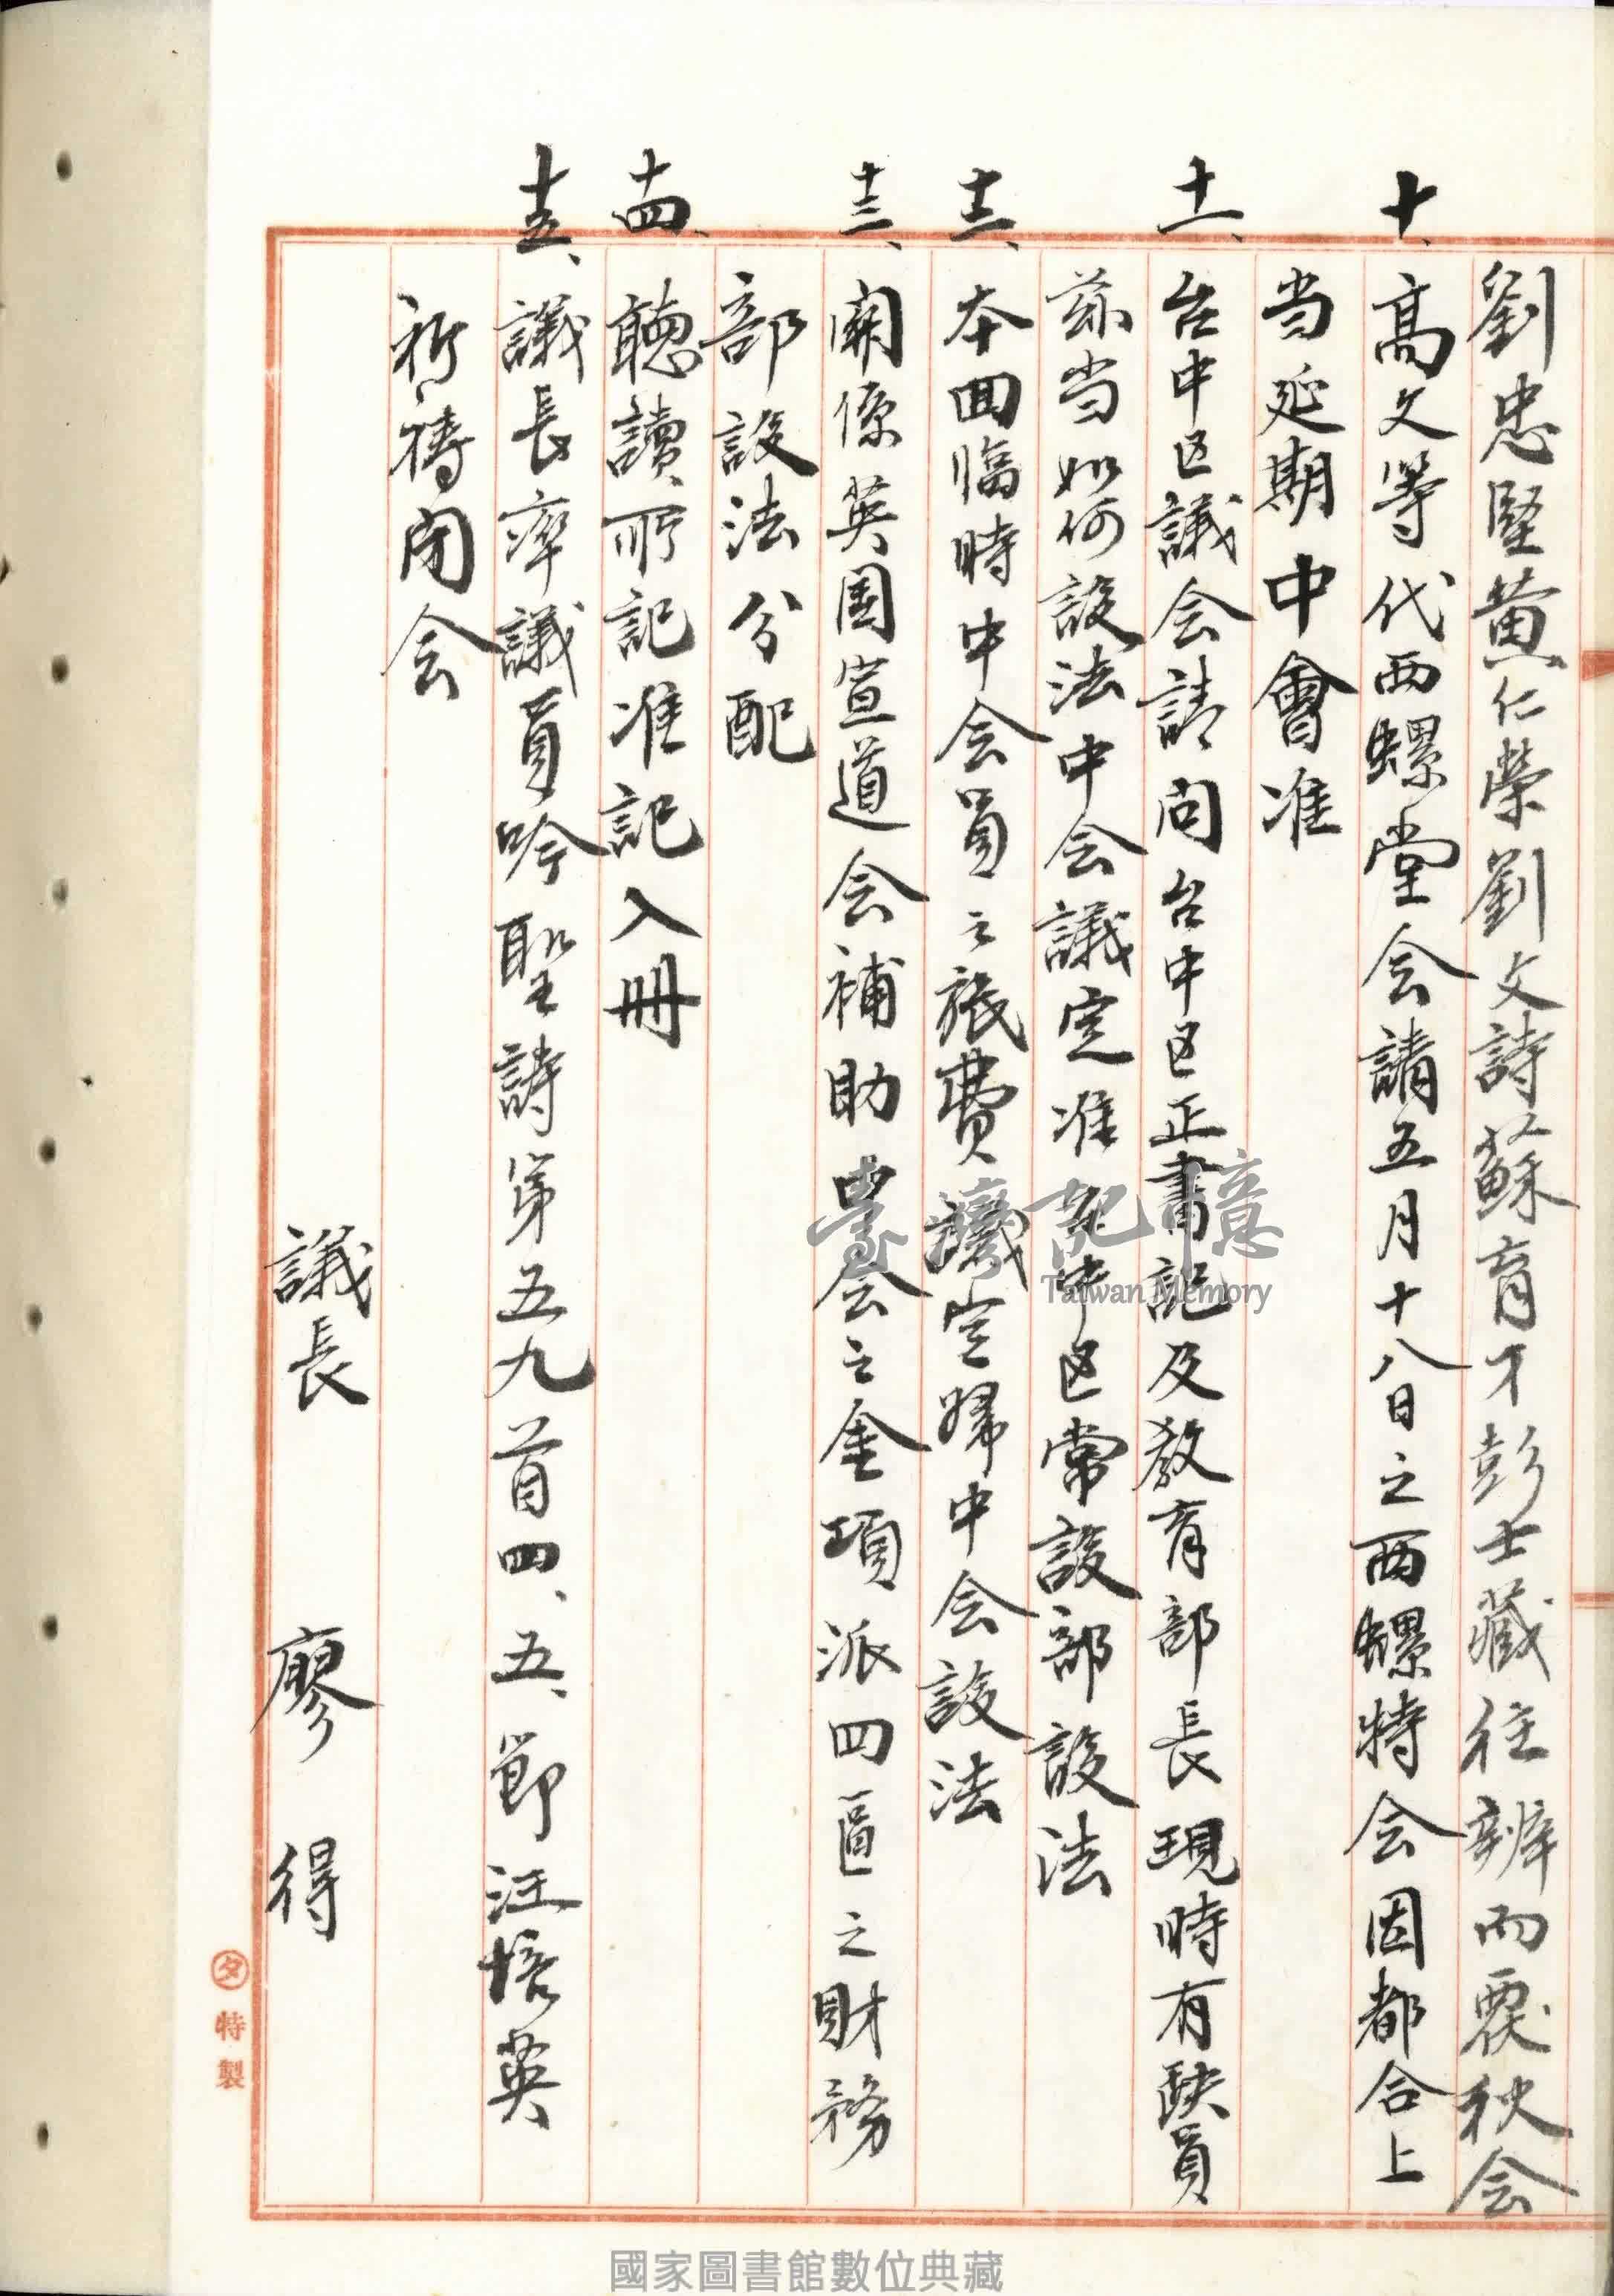 劉忠堅黃仁榮劉文詩蘇育才彭士藏往辨而覆秋会
十、高文等代西螺堂会請五月十八日之西螺特会因都合上
当延期中會准
十一、台中区議会請问台中区正書記及教育部長現時有缺員
茲当如何設法中会議定准 中区常設部設法
十二、本回臨時中会員之旅費議定歸中会設法
十三、關係英国宣道会補助 会之金項派四區之財務
部設法分配
十四、聽讀所記准記入冊
十五、議長率議員吟聖詩第五九首四、五、節汪培英
祈禱闭会
議長 廖得
タ特製
臺灣記憶
Taiwan Memory
國家圖書館數位典藏